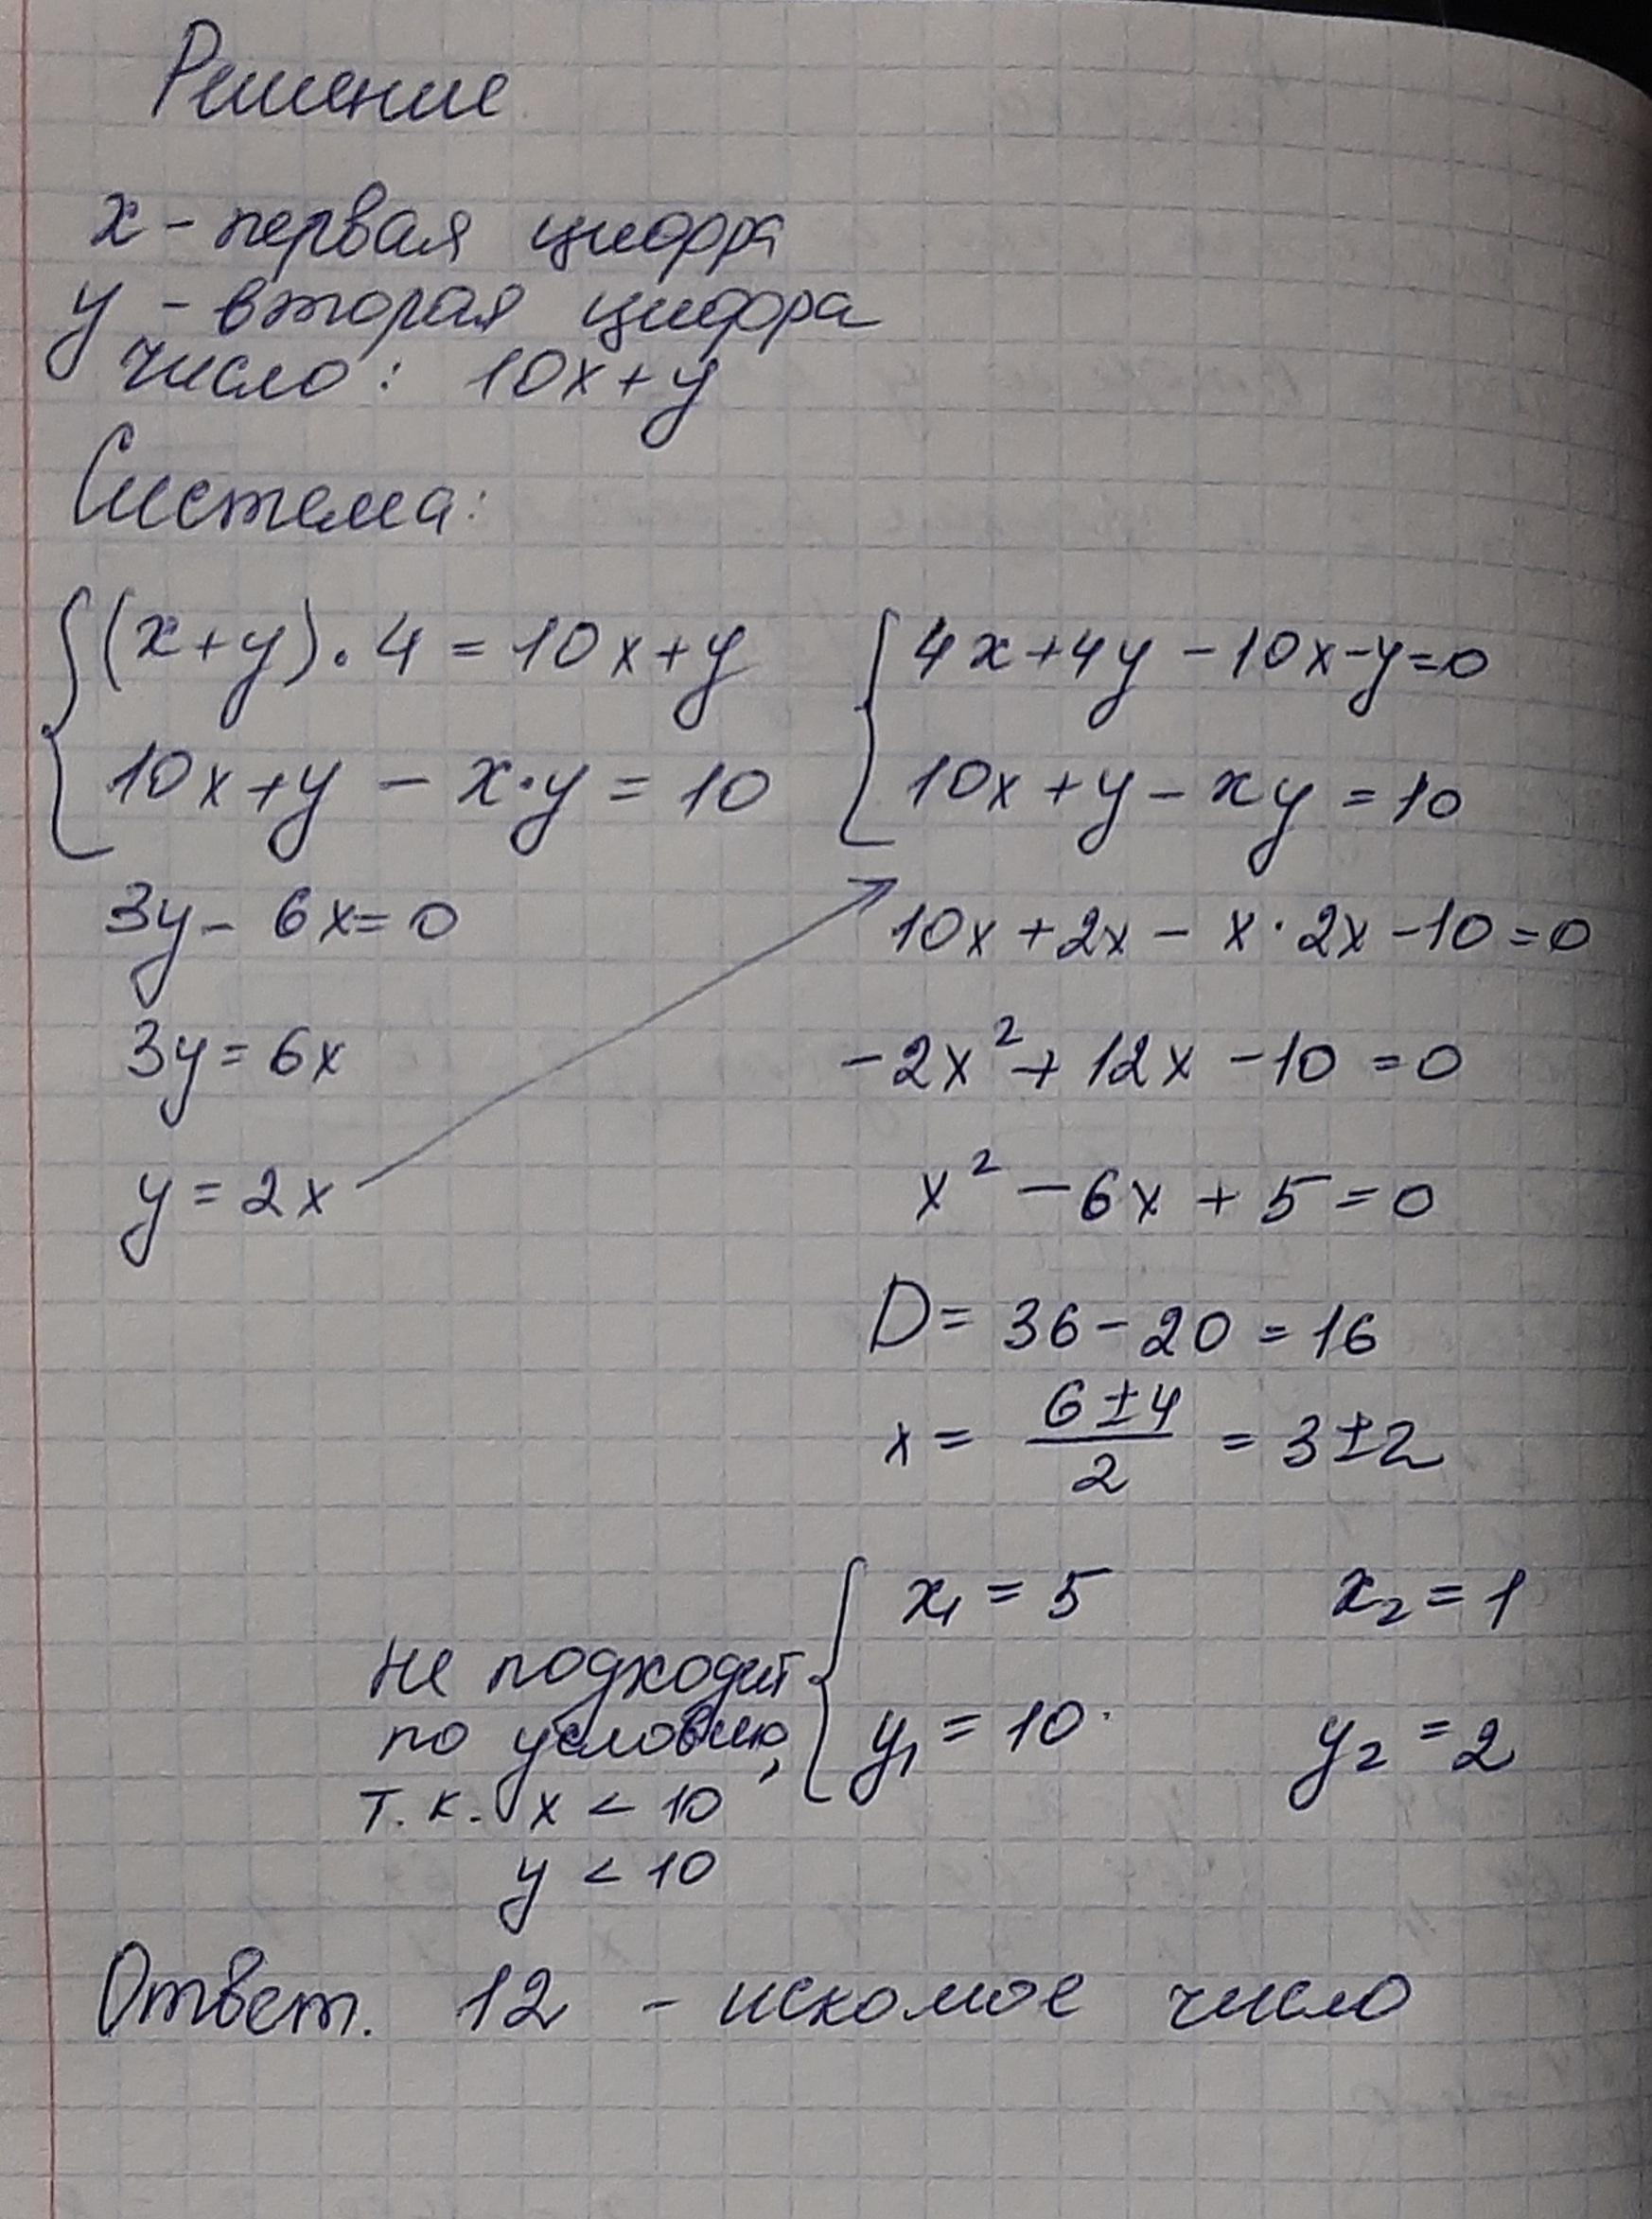 Решение
x - первая цифра
y - вторая цифра
число: 10x+y
Система:
{ (x+y)·4 = 10x+y
{ 10x+y - x·y = 10
{ 4x+4y-10x-y=0
{ 10x+y-xy=10
3y-6x=0
3y=6x
y=2x
10x+2x-x·2x-10=0
-2x²+12x-10=0
x²-6x+5=0
D=36-20=16
x = (6±4)/2 = 3±2
{ x₁=5
{ y₁=10
x₂=1
y₂=2
не подходит
по условию,
т.к. x<10
y<10
Ответ. 12 - искомое число